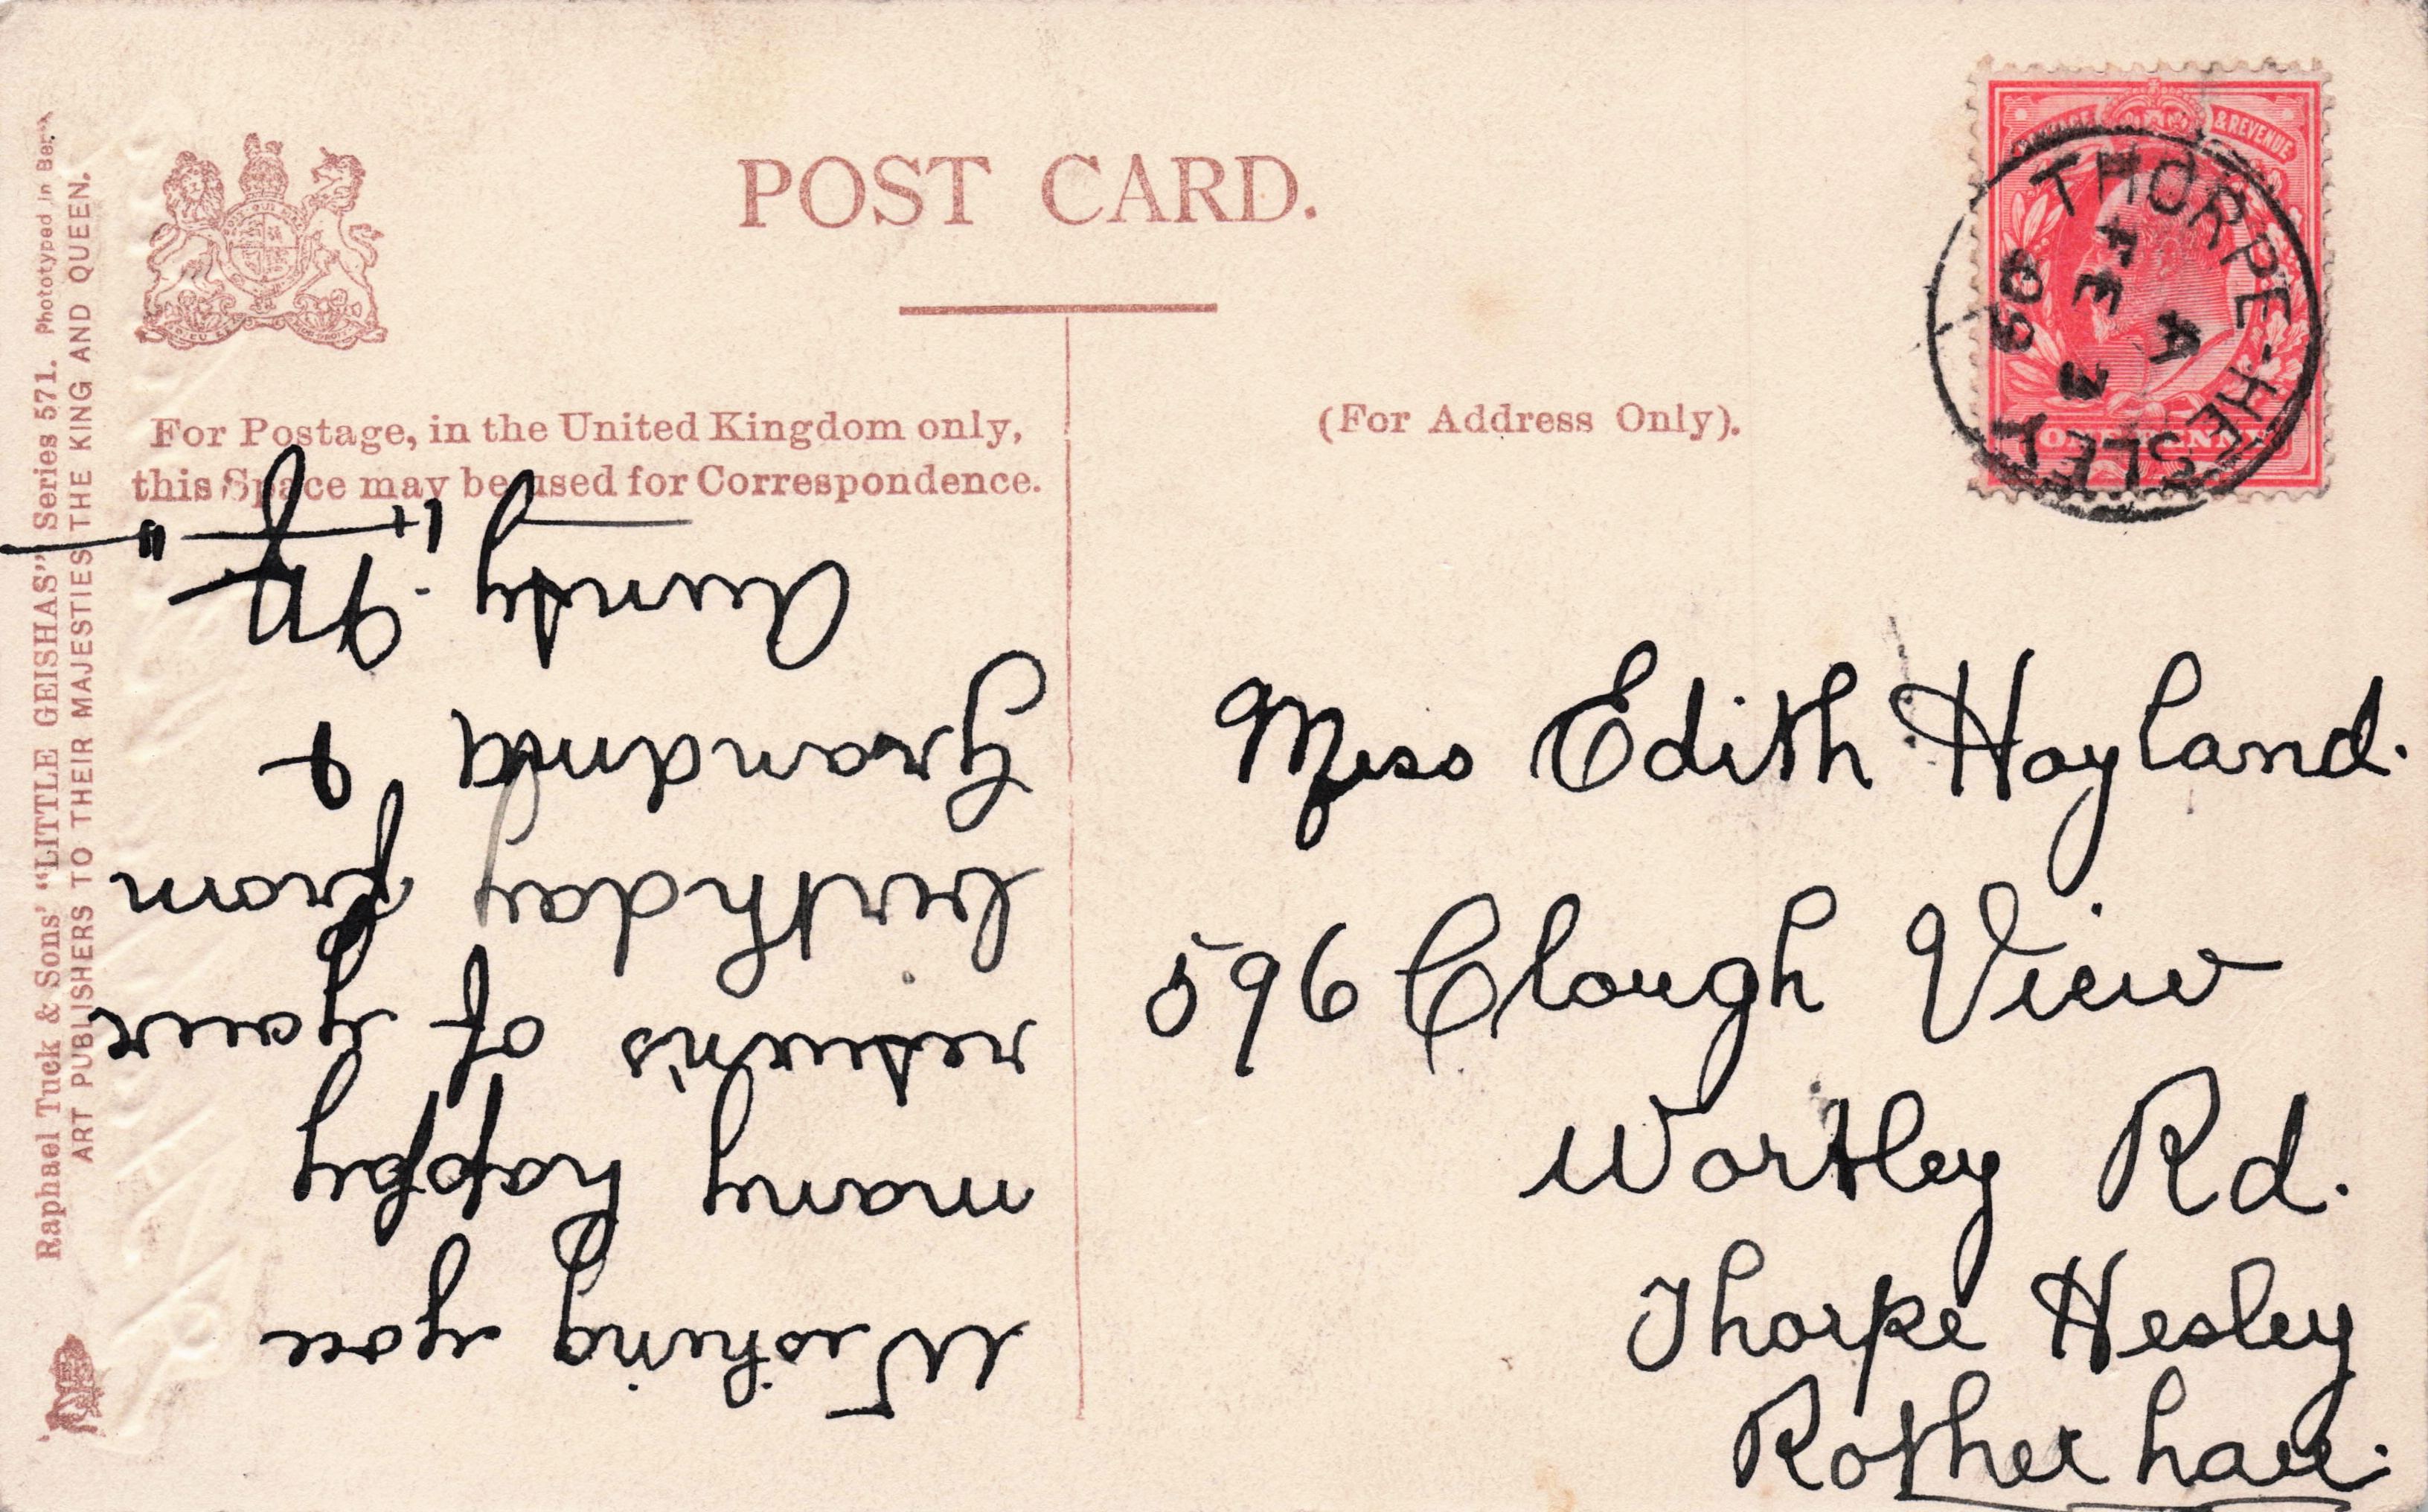 POST CARD.
For Postage, in the United Kingdom only,
this Space may be used for Correspondence.
(For Address Only).
Raphael Tuck & Sons' "LITTLE GEISHAS" Series 571. Phototyped in
ART PUBLISHERS TO THEIR MAJESTIES THE KING AND QUEEN.
POSTAGE & REVENUE
ONE PENNY
THORPE-HESLEY
A
FE 3
09
Wishing you
many happy
return's of your
birthday from
Grandma &
Aunty
Miss Edith Hoyland.
596 Clough View
Wortley Rd.
Thorpe Hesley
Rotherham.